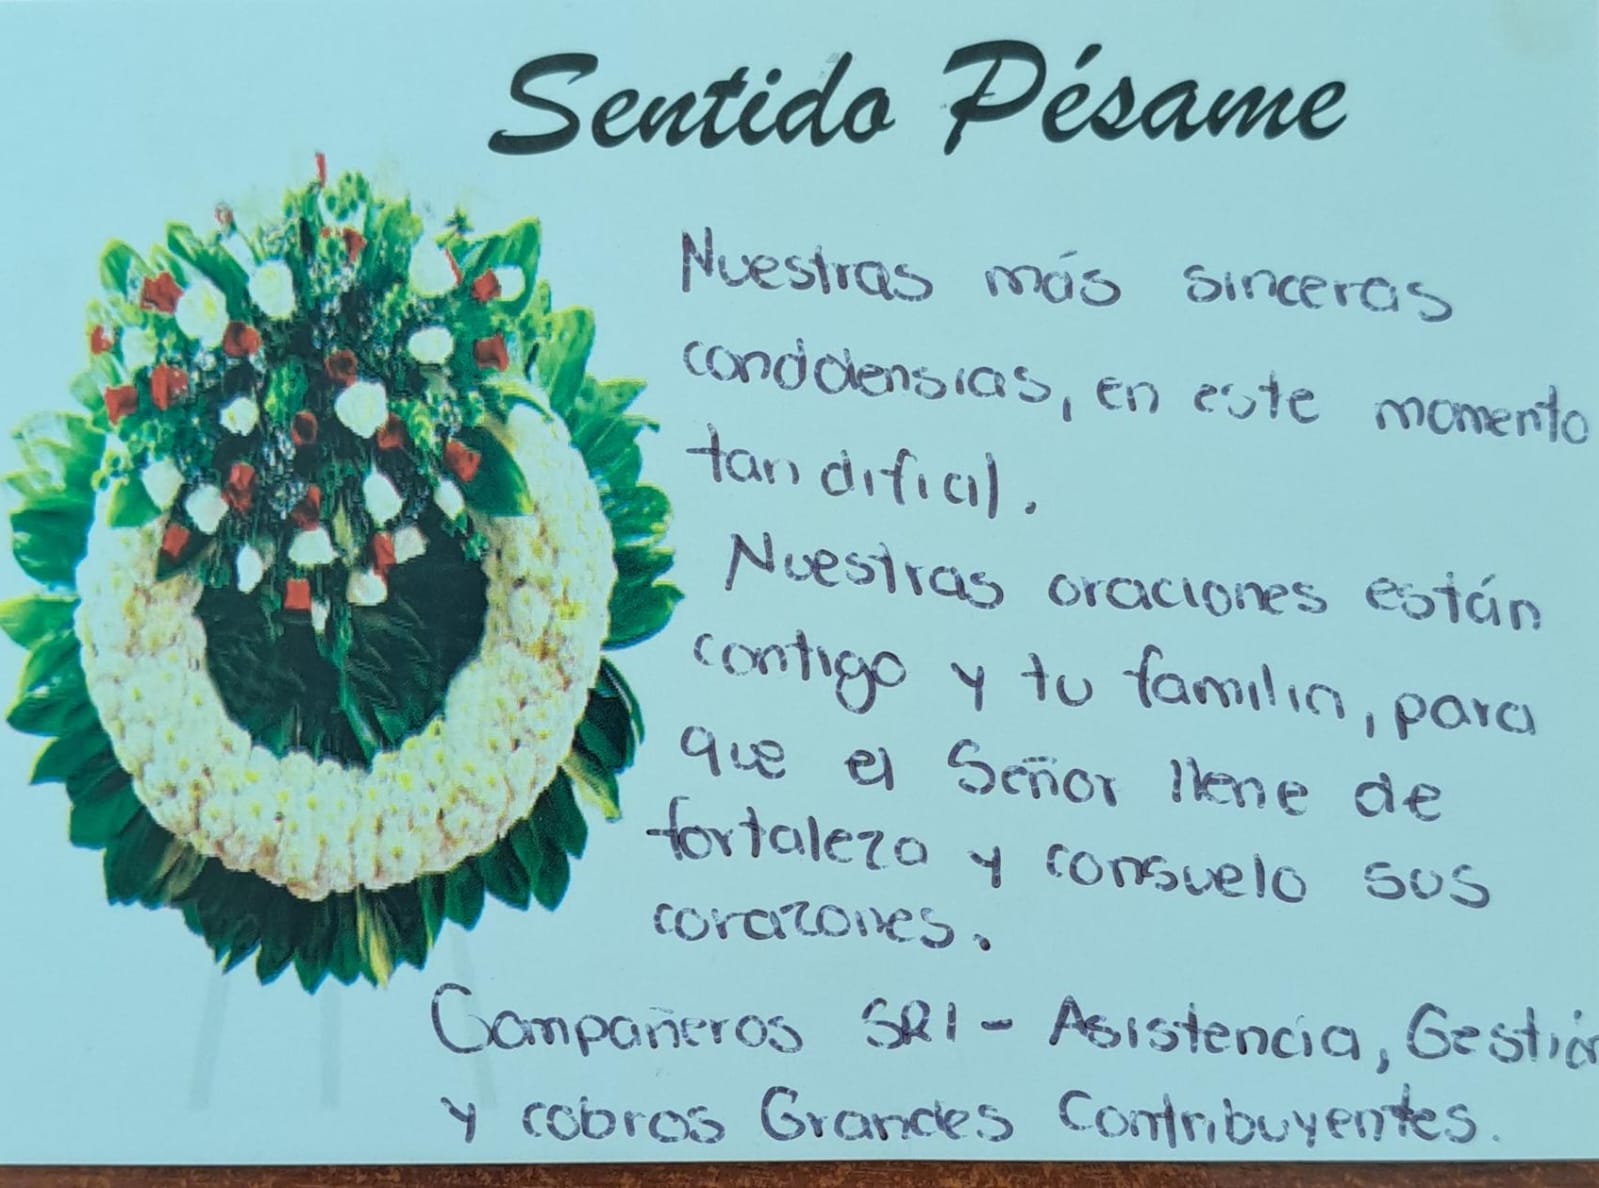 Sentido Pésame
Nuestras más sinceras
condolensias, en este momento
tan dificil.
Nuestras oraciones están
contigo y tu familia, para
que el Señor llene de
fortaleza y consuelo sus
corazones.
Compañeros SRI - Asistencia, Gestión
y cobros Grandes Contribuyentes.